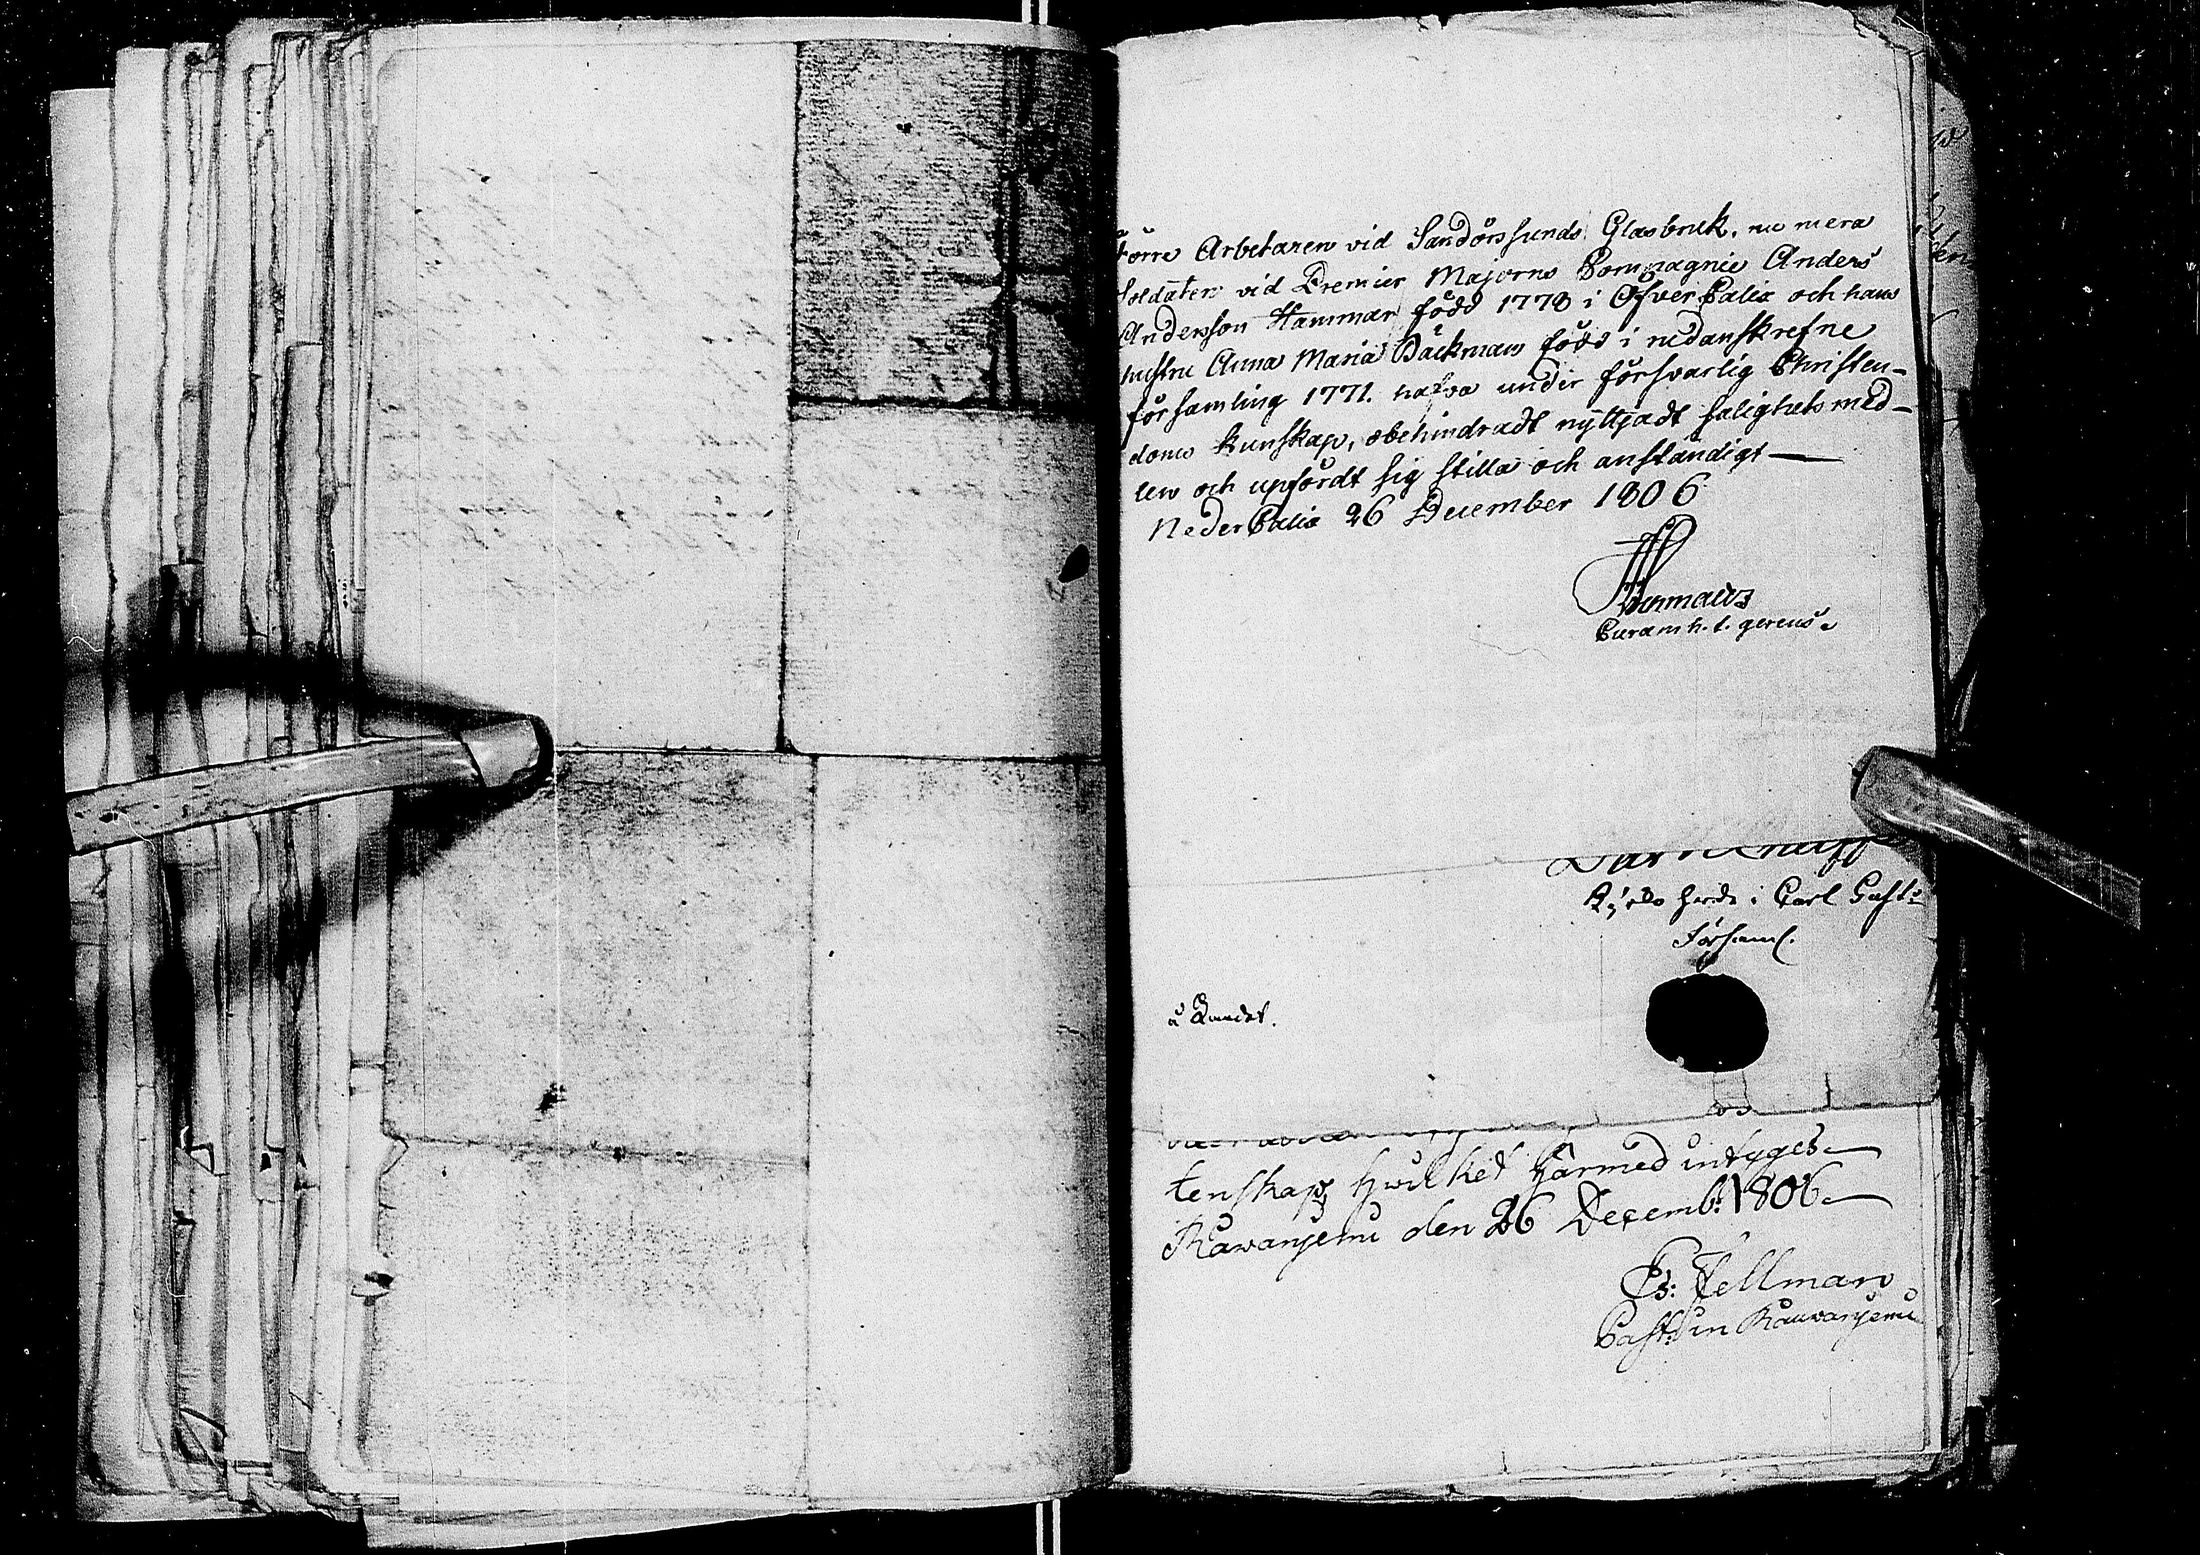 Förre Arbetaren vid Sandörssunds Glasbruk, nu mera
Soldaten vid Premier Majorns Compagnie Anders
Andersson Hammar född 1778 i ÖfverCalix och hans
hustru Anna Maria Bäckman född i nedanskrefne
församling 1771. hafva under försvarlig Christen-
doms kunskap, obehindradt nyttjadt salighets med-
len och upfördt sig stilla och anständigt —
NederCalix 26 December 1806
Curam h. t. gerens.
i Carl Gust:
Församl.
tenskap hwilket härmed intyges
Rawanjemi den 26 Decemb: 1806
Es: Fellman
Past: in Rauwanjemi